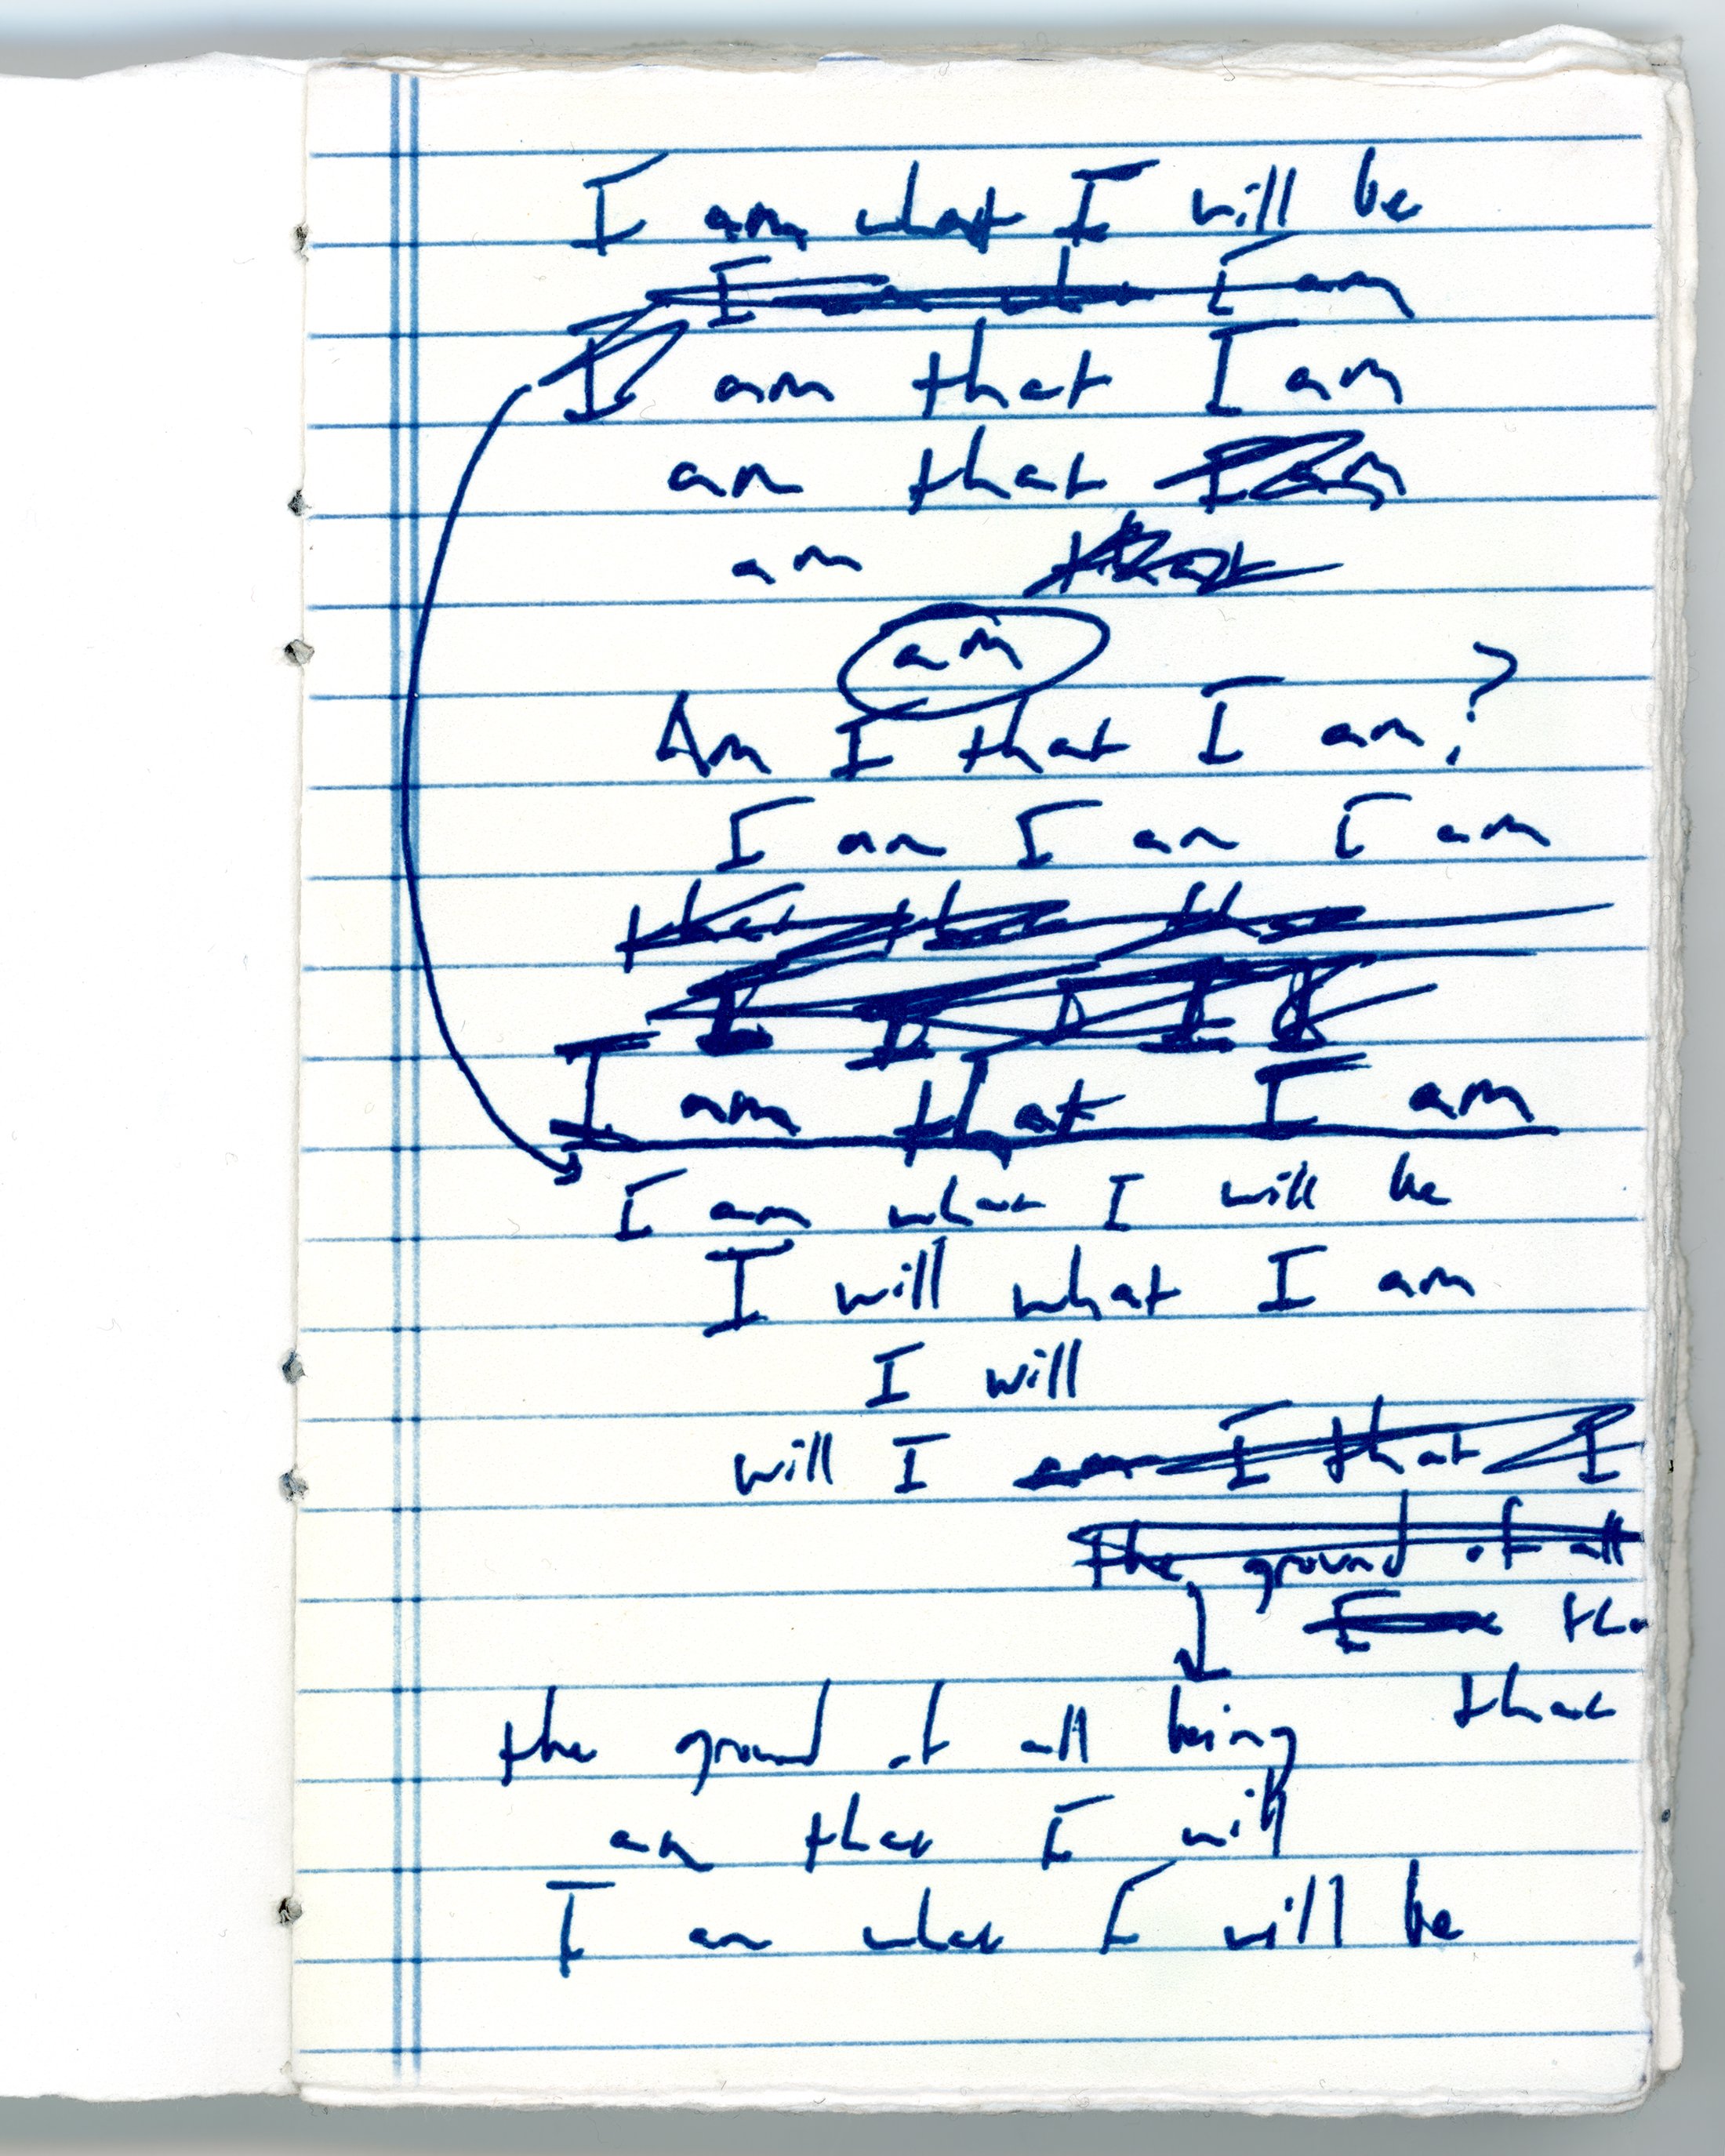 I am what I will be
I am
I am that I am
am that I am
am that
am
Am I that I am?
I am I am I am
that that that
I I I I
I am that I am
I am what I will be
I will what I am
I will
will I am I that I
the ground of all
I
that
the ground of all being
am that I will
I am what I will be